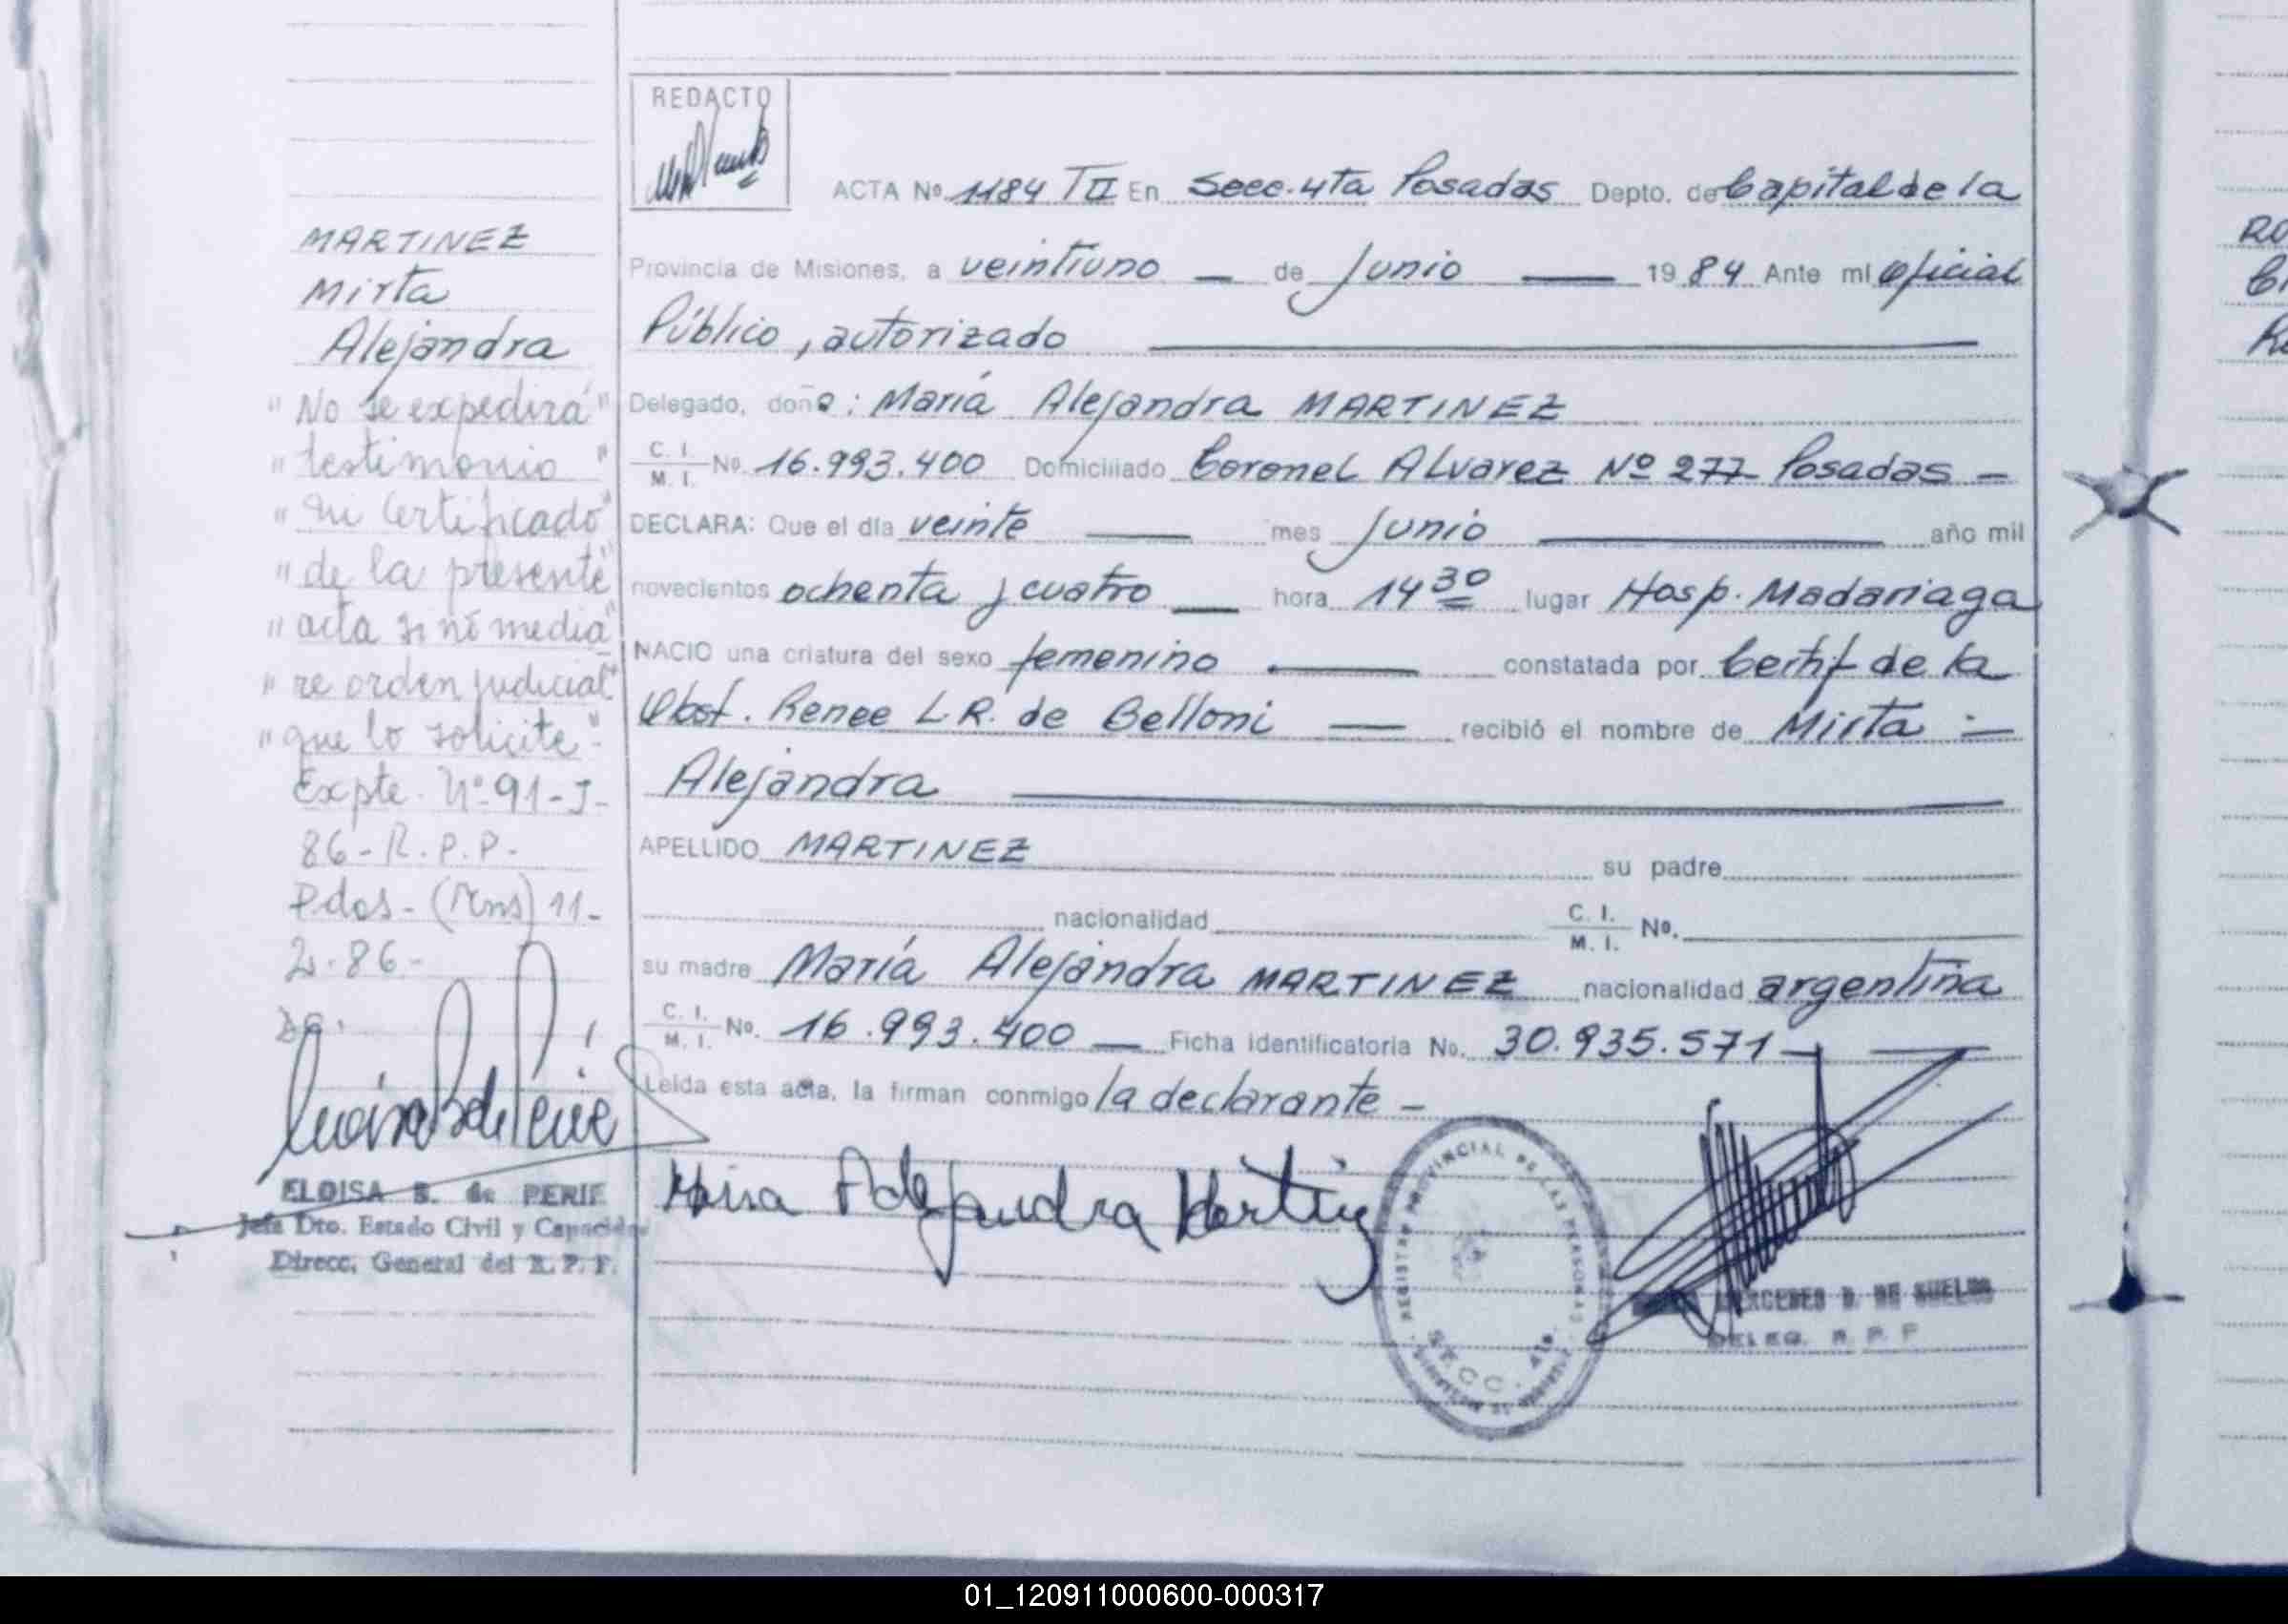 REDACTO
ACTA Nº 1184 TII En Secc. 4ta Posadas Depto. de Capital de la
MARTINEZ
Mirta
Alejandra
"No se expedirá"
"testimonio"
"ni certificado"
"de la presente"
"acta si no media"
"re orden judicial"
"que lo solicite"-
Expte. Nº 91-J-
86-R.P.P.-
Pdas-(Mns) 11-
2-86-
Provincia de Misiones, a veintiuno — de Junio — 1984 Ante mí Oficial
Público, autorizado —
Delegado, doña: María Alejandra MARTINEZ
C. I.
M. I. Nº. 16.993.400 Domiciliado Coronel Alvarez Nº 277 Posadas —
DECLARA: Que el día veinte — mes Junio — año mil
novecientos ochenta y cuatro — hora 14 30 lugar Hosp. Madariaga
NACIO una criatura del sexo femenino — constatada por Certif de la
Obst. Renee L.R. de Belloni — recibió el nombre de Mirta —
Alejandra —
APELLIDO MARTINEZ su padre
nacionalidad C. I.
M. I. Nº.
su madre María Alejandra MARTINEZ nacionalidad argentina
C. I.
M. I. Nº. 16.993.400 — Ficha identificatoria No. 30.935.571 —
Leída esta acta, la firman conmigo la declarante —
María Alejandra Martinez
ELOISA B. de PERIE
Jefa Dto. Estado Civil y Capacidad
Direcc. General del R. P. P.
REGISTRO PROVINCIAL DE LAS PERSONAS
SECC. 4ta.
MERCEDES D. DE SUELDO
DELEG. R. P. P
01_120911000600-000317